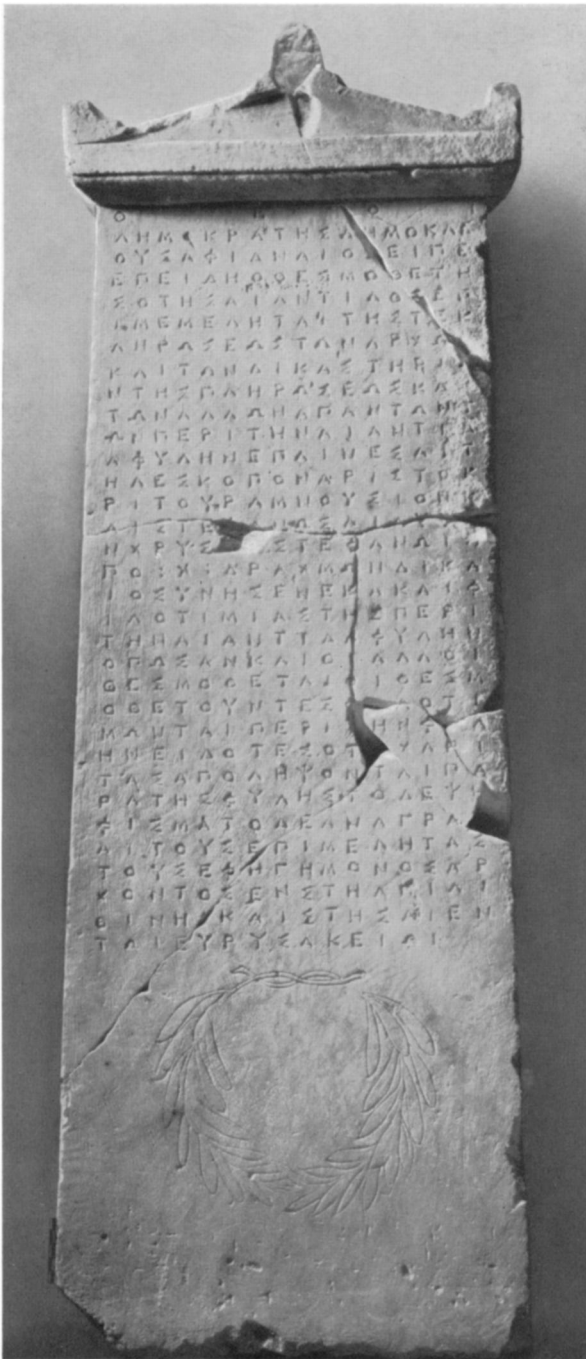 ΔΗΜΟΚΡΑΤΗΣΔΗΜΟΚΛΕ
ΟΥΣΑΦΙΔΝΑΙΟΣΕΙΠΕ
ΕΠΕΙΔΗΟΘΕΣΜΟΘΕΤΗ
ΣΟΤΗΣΑΙΑΝΤΙΔΟΣΕΠ
ΙΜΕΜΕΛΗΤΑΙΤΗΣΤΕΚ
ΛΗΡΩΣΕΩΣΤΩΝΑΡΧΩΝ
ΚΑΙΤΩΝΔΙΚΑΣΤΗΡΙΩ
ΝΤΗΣΠΛΗΡΩΣΕΩΣΚΑΙ
ΤΩΝΑΛΛΩΝΑΠΑΝΤΩΝΤ
ΩΝΠΕΡΙΤΗΝΑΙΑΝΤΙΔ
ΑΦΥΛΗΝΕΠΑΙΝΕΣΑΙΤ
ΗΛΕΣΚΟΠΟΝΑΡΙΣΤΟΚ
ΡΙΤΟΥΡΑΜΝΟΥΣΙΟΝΚ
ΑΙΣΤΕΦΑΝΩΣΑΙΑΥΤΟ
ΝΧΡΥΣΩΙΣΤΕΦΑΝΩΙΑ
ΠΟ:Χ:ΔΡΑΧΜΩΝΔΙΚΑ
ΙΟΣΥΝΗΣΕΝΕΚΑΚΑΙΦ
ΙΛΟΤΙΜΙΑΣΤΗΣΠΕΡΙ
ΤΗΝΑΙΑΝΤΙΔΑΦΥΛΗΝ
ΟΠΩΣΑΝΚΑΙΟΙΑΛΛΟΙ
ΘΕΣΜΟΘΕΤΑΙΟΙΘΕΣΜ
ΟΘΕΤΟΥΝΤΕΣΦΙΛΟΤΙ
ΜΩΝΤΑΙΠΕΡΙΤΗΝΦΥΛ
ΗΝΕΙΔΟΤΕΣΟΤΙΧΑΡΙ
ΤΑΣΑΠΟΛΗΨΟΝΤΑΙΠΑ
ΡΑΤΗΣΦΥΛΗΣΤΟΔΕΨΗ
ΦΙΣΜΑΤΟΔΕΑΝΑΓΡΑΨ
ΑΙΤΟΥΣΕΠΙΜΕΛΗΤΑΣ
ΤΟΥΣΕΦΗΓΗΜΟΝΟΣΑΡ
ΧΟΝΤΟΣΕΝΣΤΗΛΗΙΛΙ
ΘΙΝΗΙΚΑΙΣΤΗΣΑΙΕΝ
ΤΩΙΕΥΡΥΣΑΚΕΙΩΙ